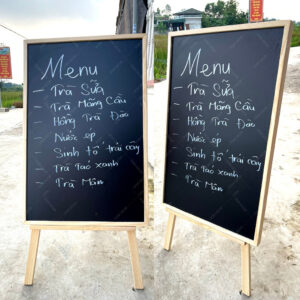 Menu
- Trà Sữa
- Trà Mãng Cầu
- Hồng Trà Đào
- Nước ép
- Sinh tố trái cây
- Trà Táo xanh
- Trà Mận
Menu
- Trà Sữa
- Trà Mãng Cầu
- Hồng Trà Đào
- Nước ép
- Sinh tố trái cây
- Trà Táo xanh
- Trà Mận